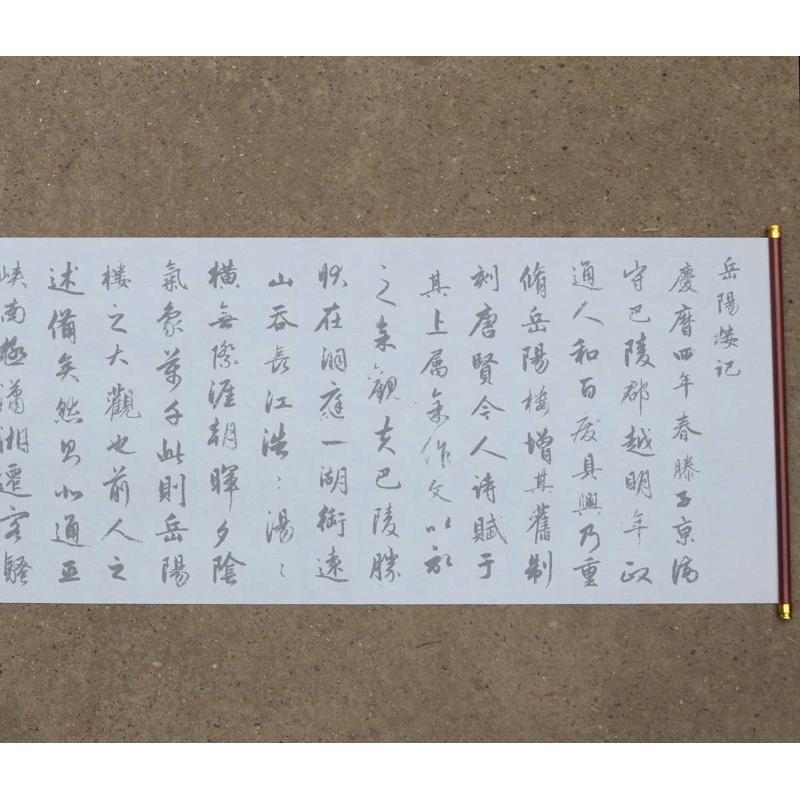 岳陽樓記
慶曆四年春滕子京謫
守巴陵郡越明年政
通人和百廢具興乃重
脩岳陽樓增其舊制
刻唐賢今人诗賦于
其上属余作文以記
之余觀夫巴陵勝
狀在洞庭一湖銜遠
山吞長江浩〻湯〻
橫無際涯朝暉夕陰
氣象萬千此則岳陽
樓之大觀也前人之
述備矣然則北通巫
峽南極瀟湘遷客騷